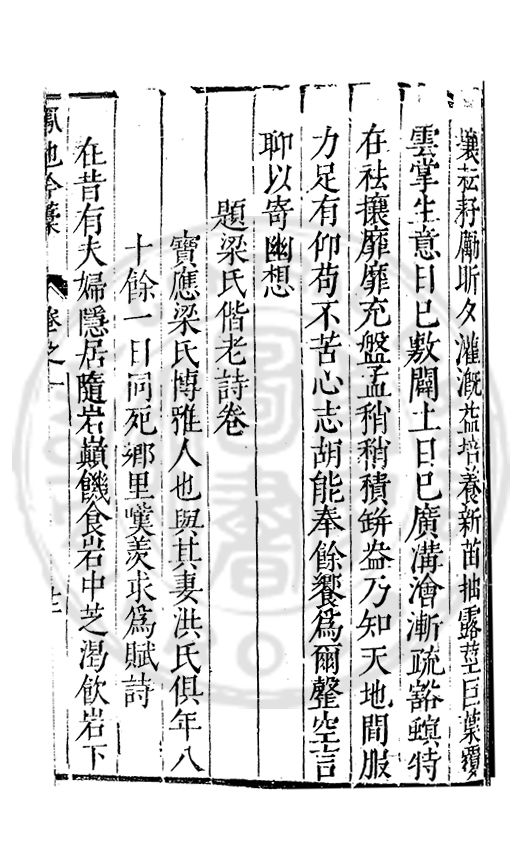 壤耘耔勵昕夕灌溉益培養新苗抽露莖巨葉覆
雲掌生意日已敷闢土日已廣溝澮漸疏豁蝡特
在祛攘靡靡充盤盂稍稍積缾盎乃知天地間服
力足有仰苟不苦心志胡能奉餘饗爲爾罄空言
聊以寄幽想
題梁氏偕老詩卷
寶應梁氏博雅人也與其妻洪氏俱年八
十餘一日同死鄉里嘆羡求爲賦詩
在昔有夫婦隱居隨岩巔饑食岩中芝渴飲岩下
鳳池吟藁 卷之一 十二